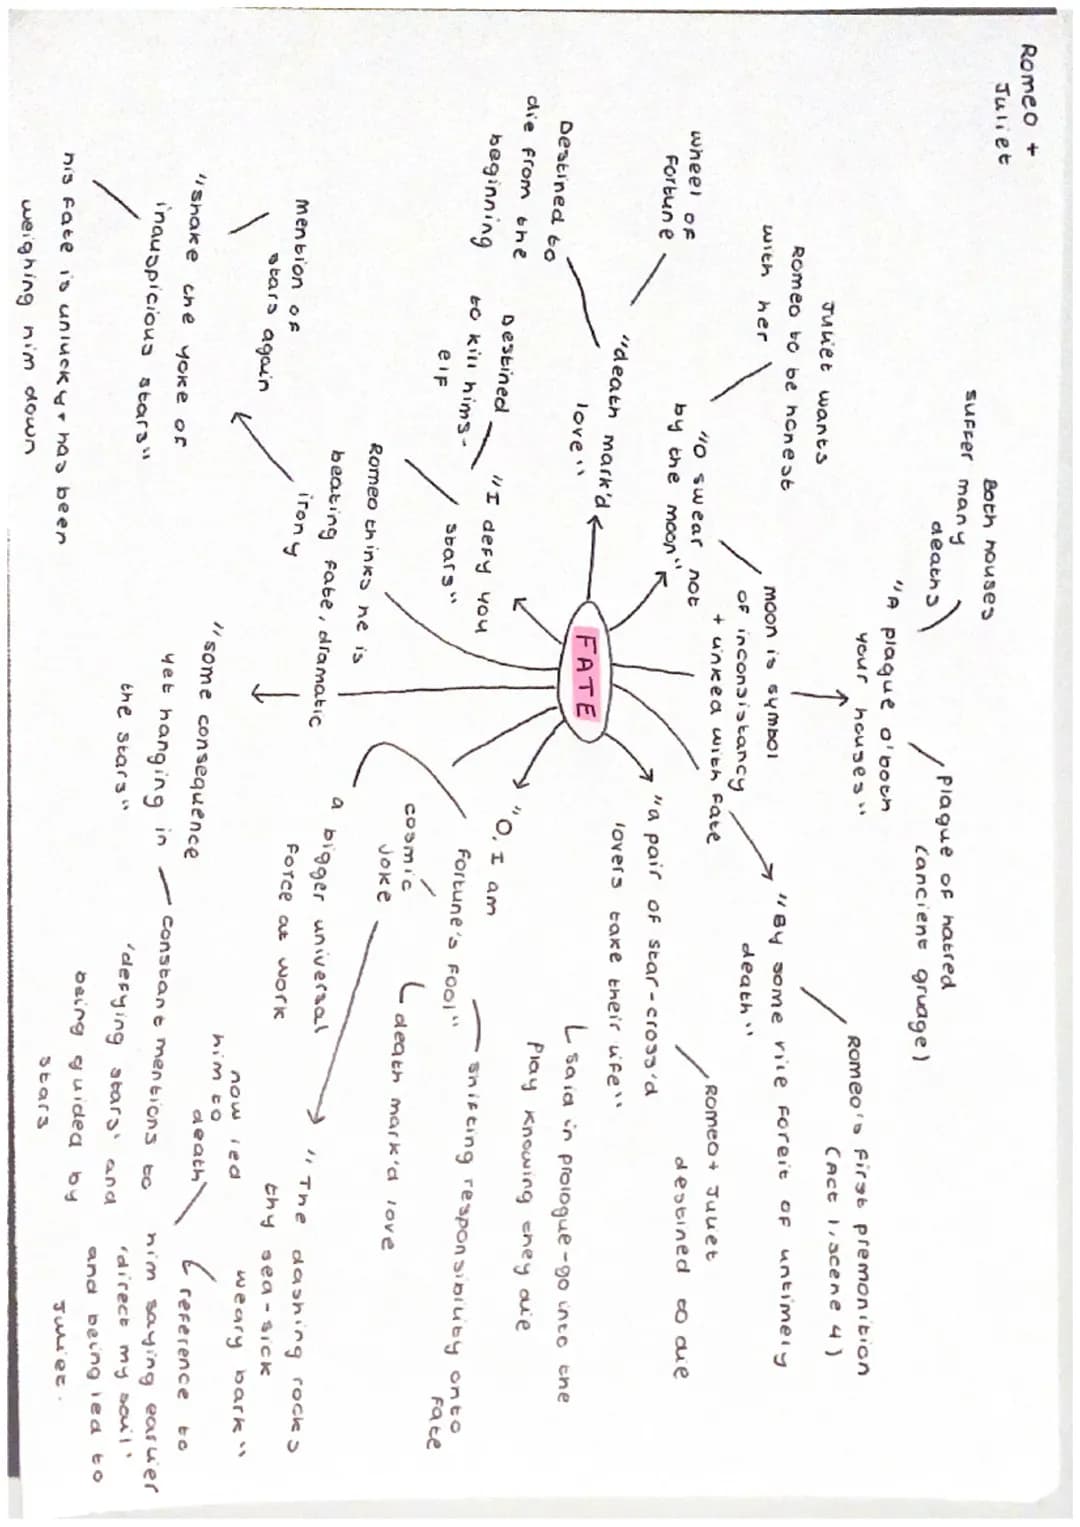 Romeo +
Juliet
Both houses
suffer many
deaths
"A plague o'both
your houses"
Plague of hatred
(ancient grudge)
Juliet wants
Romeo to be honest
with her
"O swear not
by the moon"
moon is symbol
of inconsistancy
+ linked with fate
"By some vile foreit of untimely
death"
Romeo's first premonition
(Act 1, scene 4)
wheel of
Fortune
Destined to
die from the
beginning
"death mark'd
love"
FATE
"a pair of star-cross'd
lovers take their life"
Romeo + Juliet
destined to die
said in prologue - go into the
play knowing they die
Destined
to kill hims-
elf
"I defy you
stars"
Romeo thinks he is
beating fate, dramatic
irony
"O, I am
fortune's fool"
shifting responsibility onto
fate
cosmic
joke
death mark'd love
a bigger universal
force at work
mention of
stars again
"shake the yoke of
inauspicious stars"
his fate is unlucky + has been
weighing him down
"some consequence
yet hanging in
the stars"
constant mentions to
'defying stars' and
being guided by
stars
"The dashing rocks
thy sea-sick
weary bark"
now led
him to
death
reference to
him saying earlier
'direct my sail'
and being led to
Juliet.